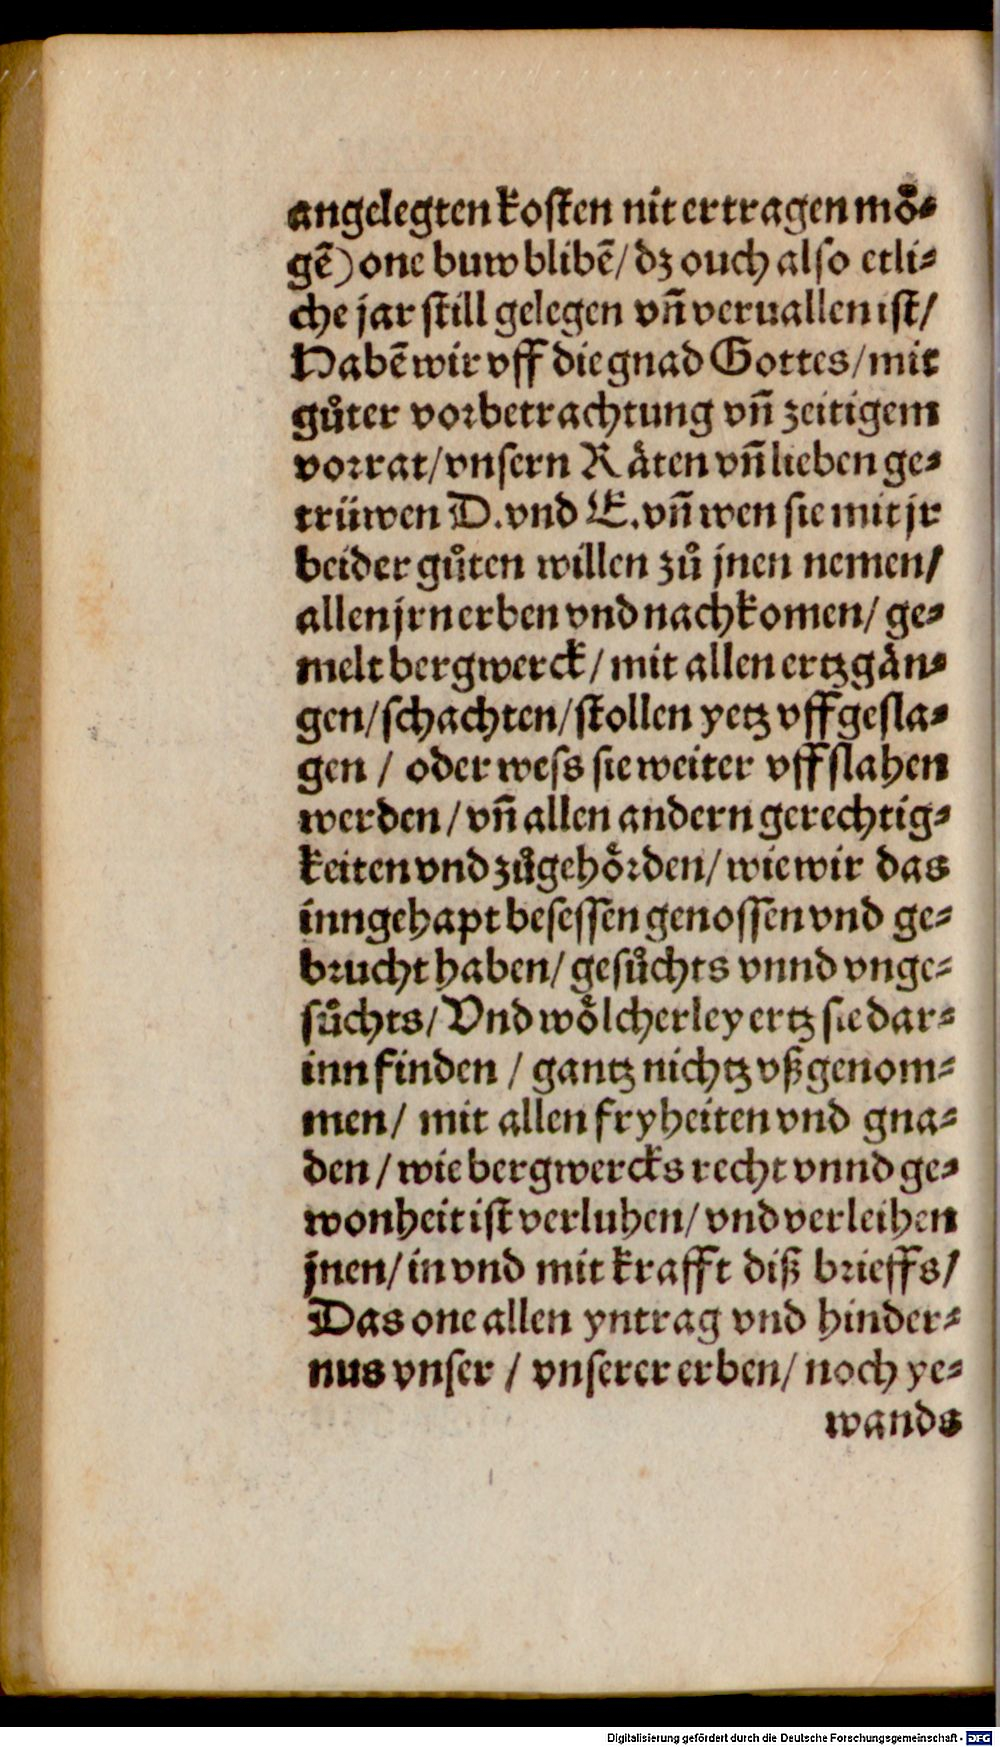 angelegten kosten nit ertragen moͤ⸗
gē) one buw blibē/ dz ouch also etli⸗
che jar still gelegen vn̄ veruallen ist/
Habē wir vff die gnad Gottes/ mit
guͦter vorbetrachtung vn̄ zeitigem
vorrat/ vnsern Raͤten vn̄ lieben ge⸗
trüwen D. vnd E. vn̄ wen sie mit jr
beider guͦten willen zuͦ jnen nemen/
allen jrn erben vnd nachkomen/ ge⸗
melt bergwerck/ mit allen ertzgaͤn⸗
gen/ schachten/ stollen yetz vffgesla⸗
gen / oder wess sie weiter vffslahen
werden/ vn̄ allen andern gerechtig⸗
keiten vnd zuͦgehoͤrden/ wie wir das
inngehapt besessen genossen vnd ge⸗
brucht haben/ gesuͦchts vnnd vnge⸗
suͦchts/ Vnd woͤlcherley ertz sie dar⸗
inn finden / gantz nichtz vßgenom⸗
men/ mit allen fryheiten vnd gna⸗
den/ wie bergwercks recht vnnd ge⸗
wonheit ist verluhen/ vnd verleihen
jnen/ in vnd mit krafft diß brieffs/
Das one allen yntrag vnd hinder⸗
nus vnser / vnserer erben/ noch ye⸗
wands
Digitalisierung gefördert durch die Deutsche Forschungsgemeinschaft - DFG